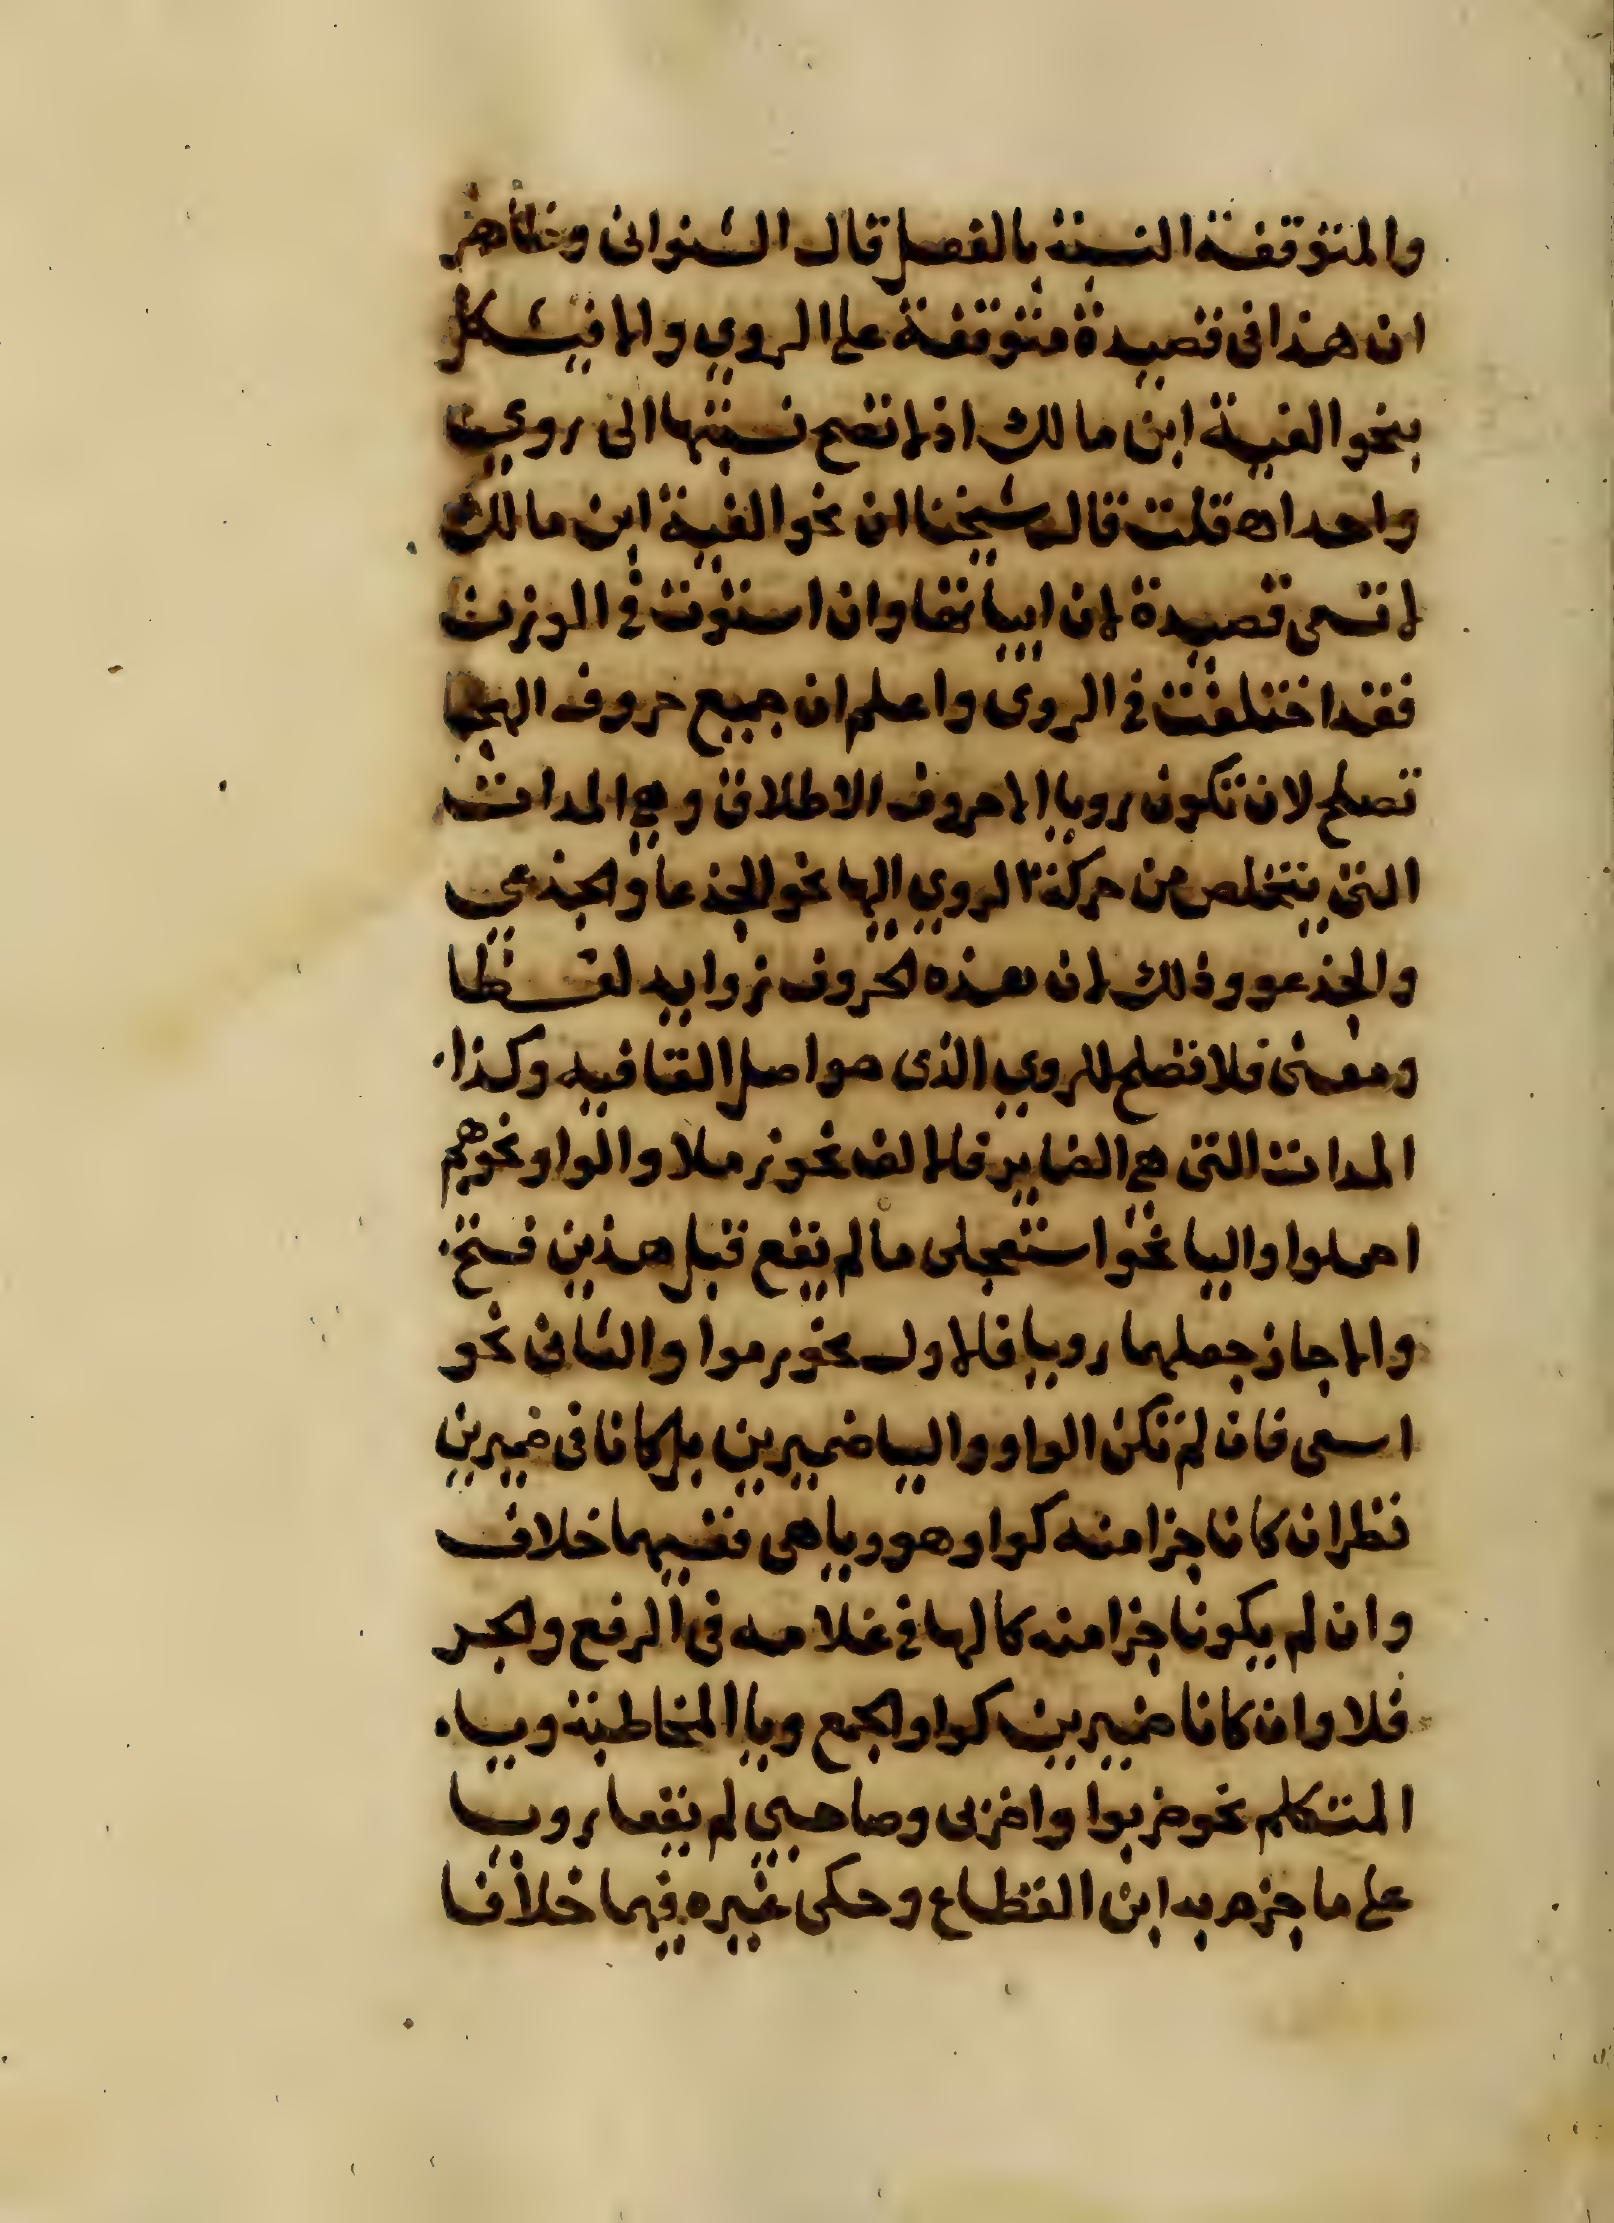 والمتوقفة النسبة بالفصل قال الشنوانى وظاهر
ان هذا فى قصيدة متوقفة على الروي والا فيشكل
بنحو الفية ابن مالك اذ لا تصح نسبتها الى روي
واحد اه قلت قال شيخنا ان نحو الفية ابن مالك
لا تسمى قصيدة لان ابياتها وان استوت في الوزن
فقد اختلفت في الروى واعلم ان جميع حروف الهجا
تصلح لان تكون رويا الا حروف الاطلاق وهي المدات
التى يتخلص من حركة الروي اليها نحو الجذعا والجذعي
والجذعو وذلك لان هذه الحروف زوايد لفظا
ومعنى فلا تصلح للروي الذى هو اصل القافيه وكذا
المدات التى هي الضماير فالالف نحو زملا والواو نحو هم
اهملوا واليا نحو استعجلى ما لم يقع قبل هذين فتح
والا جاز جعلهما رويا فالاول نحو رموا والثانى نحو
اسعى فان لم تكن الواو واليا ضميرين بل كانا فى ضميرين
نظر ان كانا جزا منه كواو هو ويا هى ففيهما خلاف
وان لم يكونا جزا منه كالها في غلامه فى الرفع والجر
فلا وان كانا ضميرين كواو الجمع ويا المخاطبة ويا
المتكلم نحو ضربوا واضربى وصاحبي لم يقعا رويا
على ما جزم به ابن القطاع وحكى غيره فيهما خلافا